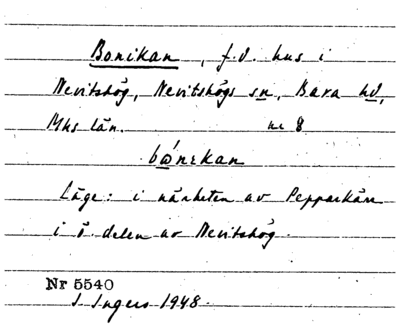 Bonikan, f.d. hus i
Nevitshög, Nevitshögs sn, Bara hd,
Mhs län. nr 8
Läge: i närheten av Pepparkärr
i ö. delen av Nevitshög.
Nr 5540
I Ingers 1948.